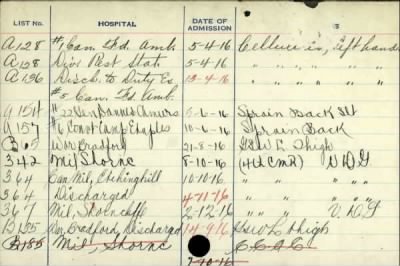 LIST No. HOSPITAL DATE OF ADMISSION
A128 #1 Can. Fd. Amb. 5-4-16 Cellucitis, left hand
A128 Divn Rest Stat. 5-4-16 " " "
A136 Disch. to Duty Ex 13-4-16 " " "
#5. Can. Fd. Amb.
A154 #22 Gen. Dannes Camiers -6-16 Sprain Back Slt
A157 #6 Conv. Camp Etaples 10-6-16 Sprain Back
War. Bradford 21-8-16 Thigh
342 Mil Shorne 8-10-16 (4th CMR) V.D.G
364 Can Mil, Etchinghill 10.10-16 " " "
364 Discharged 4-11-16 " " "
367 Mil, Shorncliffe 2-12-16 V.D.G
B135 War, Bradford, Discharged 14-9-16 Thigh
B185 Mil, Shorne C.C.A.C
7-10-16